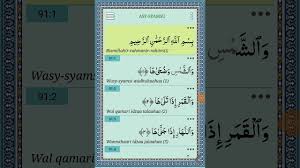 ASY-SYAMSU
بِسْمِ اللَّهِ الرَّحْمَٰنِ الرَّحِيمِ
Bismillahir-rahmanir-rahim(i)
91:1
وَالشَّمْسِ وَضُحَاهَا ﴿١﴾
Wasy-syamsi wadhuhaahaa (1)
91:2
وَالْقَمَرِ إِذَا تَلَاهَا ﴿٢﴾
Wal qamari idzaa talaahaa (2)
91:3
وَالنَّهَارِ إِذَا جَلَّاهَا ﴿٣﴾
Wannahaari idzaa jallaahaa (3)
91:4